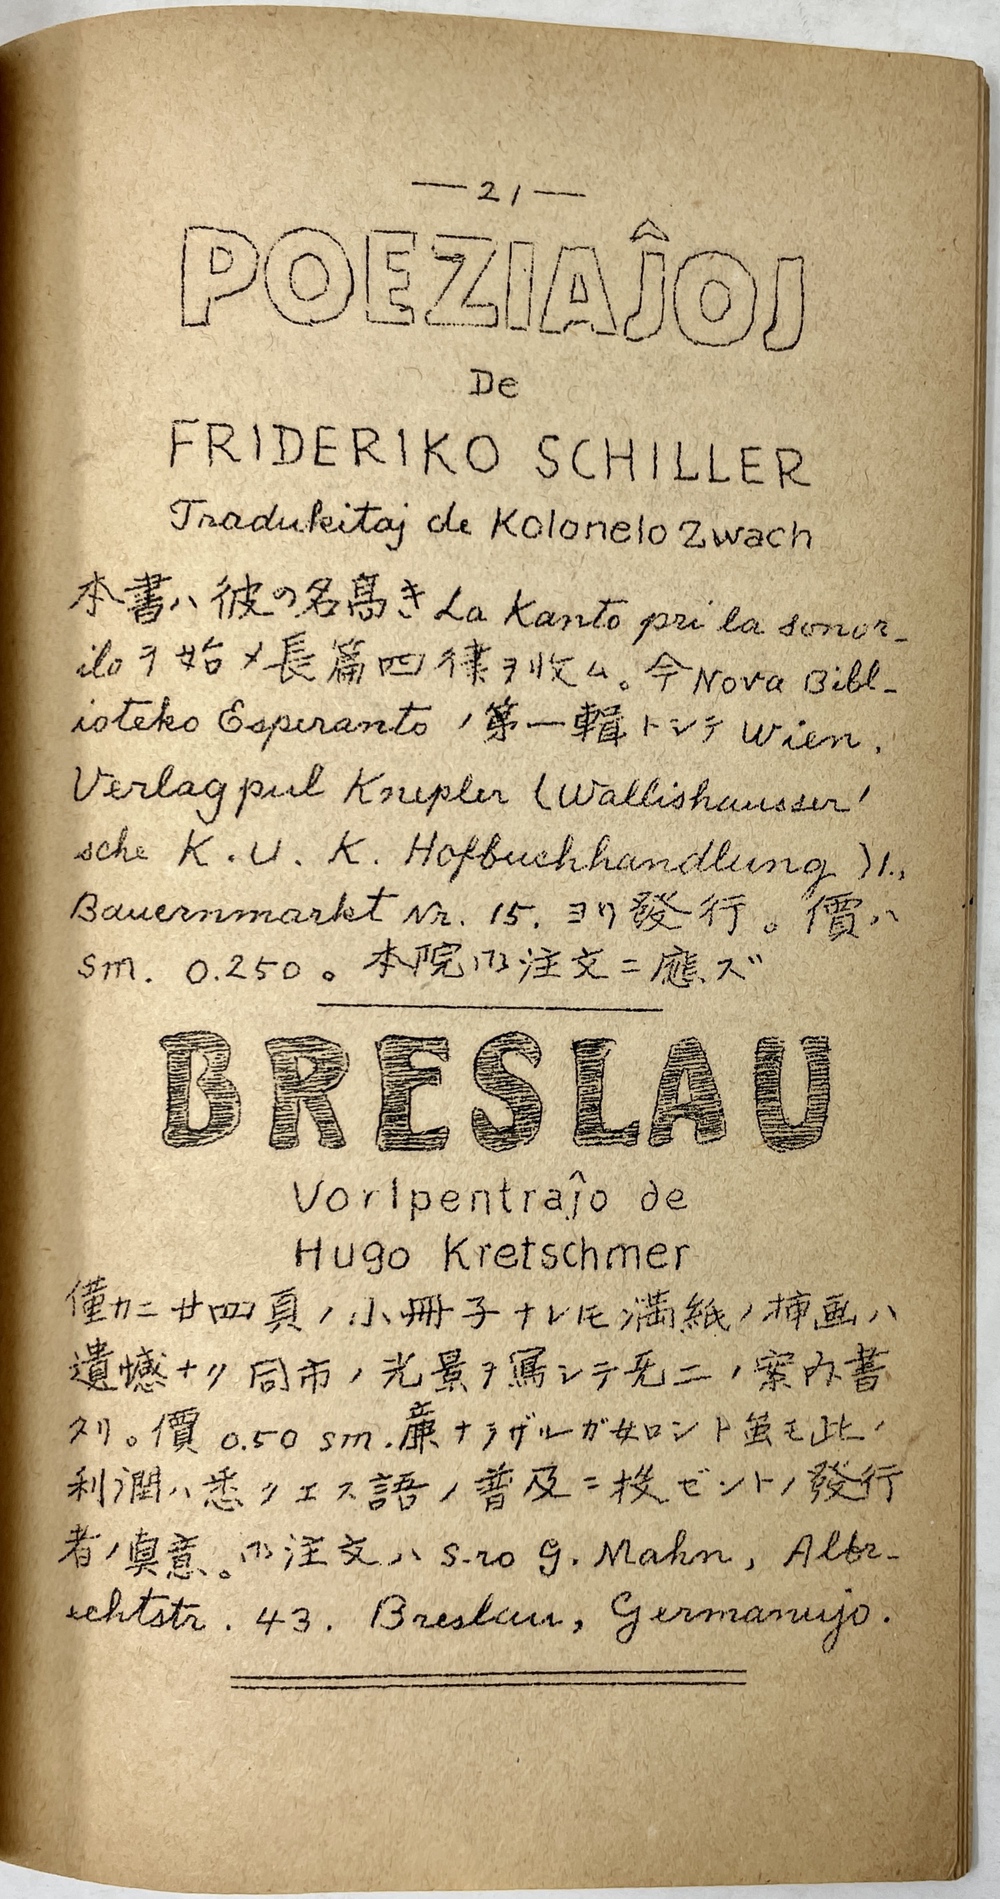 —21—
POEZIAĴOJ
De
FRIDERIKO SCHILLER
Tradukitaj de Kolonelo Zwach
本書ハ彼の名高き La Kanto pri la sonor-
iloヲ始メ長篇四律ヲ收ム。今 Nova Bibl-
ioteko Esperanto ノ第一輯トシテ Wien,
Verlag pul Knepler (Wallishausser'
sche K. U. K. Hofbuchhandlung) 1.,
Bauernmarkt Nr. 15. ヨリ發行。價ハ
sm. 0.250。本院 注文ニ應ズ
BRESLAU
Vorlpentraĵo de
Hugo Kretschmer
僅カニ廿四頁ノ小冊子ナレ𪜈満紙ノ挿画ハ
遺憾ナク同市ノ光景ヲ寫シテ無二ノ案内書
タリ。價 0.50 sm. 廉ナラザルガ如ロント モ此ノ
利潤ハ悉クエス語ノ普及ニ投ゼントノ發行
者ノ眞意。 注文ハ S-ro G. Mahn, Albr-
echtstr. 43. Breslau, Germanujo.